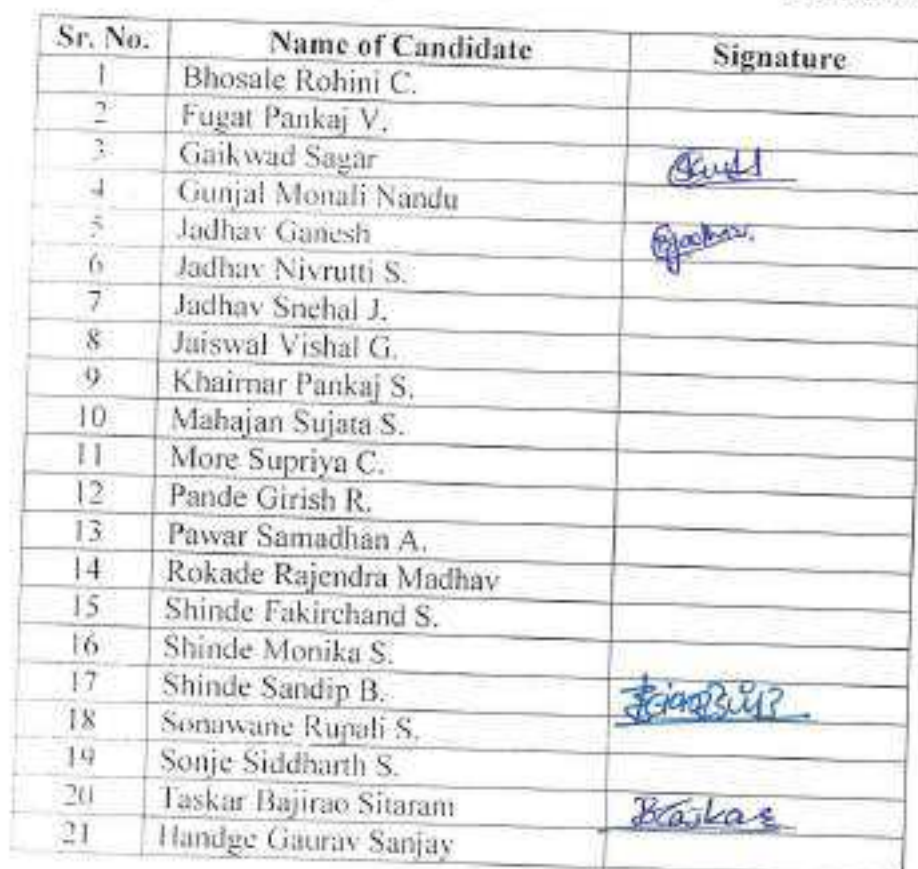 Sr. No. Name of Candidate Signature
1 Bhosale Rohini C.
2 Fugat Pankaj V.
3 Gaikwad Sagar
4 Gunjal Monali Nandu
5 Jadhav Ganesh
6 Jadhav Nivrutti S.
7 Jadhav Snehal J.
8 Jaiswal Vishal G.
9 Khairnar Pankaj S.
10 Mahajan Sujata S.
11 More Supriya C.
12 Pande Girish R.
13 Pawar Samadhan A.
14 Rokade Rajendra Madhav
15 Shinde Fakirchand S.
16 Shinde Monika S.
17 Shinde Sandip B.
18 Sonawane Rupali S.
19 Sonje Siddharth S.
20 Taskar Bajirao Sitaram
21 Handge Gaurav Sanjay